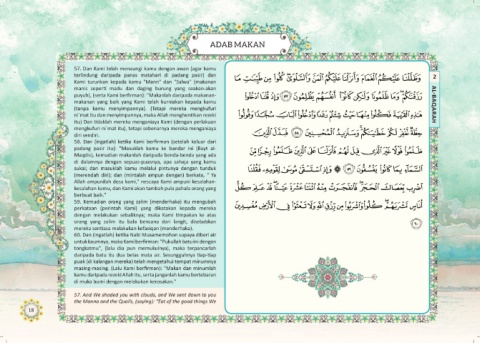 ADAB MAKAN
57. Dan Kami telah menaungi kamu dengan awan (agar kamu
terlindung daripada panas matahari di padang pasir) dan
Kami turunkan kepada kamu "Mann" dan "Salwa" (makanan
manis seperti madu dan daging burung yang seakan-akan
puyuh), (serta Kami berfirman): "Makanlah daripada makanan-
makanan yang baik yang Kami telah kurniakan kepada kamu
(tanpa kamu menyimpannya). (Tetapi mereka mengkufuri
ni'mat itu dan menyimpannya, maka Allah menghentikan rezeki
itu) Dan tidaklah mereka menganiaya Kami (dengan perlakuan
mengkufuri ni'mat itu), tetapi sebenarnya mereka menganiaya
diri sendiri.
58. Dan (ingatlah) ketika Kami berfirman (setelah keluar dari
padang pasir itu): "Masuklah kamu ke bandar ini (Bayt al-
Maqdis), kemudian makanlah daripada benda-benda yang ada
di dalamnya dengan sepuas-puasnya, apa sahaja yang kamu
sukai; dan masuklah kamu melalui pintunya dengan tunduk
(merendah diri); dan (mintalah ampun dengan) berkata, " Ya
Allah ampunilah dosa kami," nescaya Kami ampuni kesalahan-
kesalahan kamu, dan Kami akan tambah pula pahala orang yang
berbuat baik."
59. Kemudian orang yang zalim (menderhaka) itu mengubah
perkataan (perintah Kami) yang dikatakan kepada mereka
dengan melakukan sebaliknya; maka Kami timpakan ke atas
orang yang zalim itu bala bencana dari langit, disebabkan
mereka sentiasa melakukan kefasikan (menderhaka).
60. Dan (ingatlah) ketika Nabi Musa memohon supaya diberi air
untuk kaumnya, maka Kami berfirman: "Pukullah batu itu dengan
tongkatmu", (lalu dia pun memukulnya), maka terpancarlah
daripada batu itu dua belas mata air. Sesungguhnya tiap-tiap
puak (di kalangan mereka) telah mengetahui tempat minumnya
masing-masing. (Lalu Kami berfirman): "Makan dan minumlah
kamu daripada rezeki Allah itu, serta janganlah kamu bertebaran
di muka bumi dengan melakukan kerosakan."
57. And We shaded you with clouds, and We sent down to you
the Manna and the Quails, (saying): "Eat of the good things We
وَظَلَّلْنَا عَلَيْكُمُ الْغَمَامَ وَأَنزَلْنَا عَلَيْكُمُ الْمَنَّ وَالسَّلْوَىٰ كُلُوا مِن طَيِّبَٰتِ مَا
رَزَقْنَٰكُمْ وَمَا ظَلَمُونَا وَلَٰكِن كَانُوا أَنفُسَهُمْ يَظْلِمُونَ ٥٧ وَإِذْ قُلْنَا ادْخُلُوا
هَٰذِهِ الْقَرْيَةَ فَكُلُوا مِنْهَا حَيْثُ شِئْتُمْ رَغَدًا وَادْخُلُوا الْبَابَ سُجَّدًا وَقُولُوا
حِطَّةٌ نَّغْفِرْ لَكُمْ خَطَٰيَٰكُمْ وَسَنَزِيدُ الْمُحْسِنِينَ ٥٨ فَبَدَّلَ الَّذِينَ
ظَلَمُوا قَوْلًا غَيْرَ الَّذِي قِيلَ لَهُمْ فَأَنزَلْنَا عَلَى الَّذِينَ ظَلَمُوا رِجْزًا مِّنَ
السَّمَاءِ بِمَا كَانُوا يَفْسُقُونَ ٥٩ وَإِذِ اسْتَسْقَىٰ مُوسَىٰ لِقَوْمِهِ فَقُلْنَا
اضْرِب بِّعَصَاكَ الْحَجَرَ فَانفَجَرَتْ مِنْهُ اثْنَتَا عَشْرَةَ عَيْنًا قَدْ عَلِمَ كُلُّ
أُنَاسٍ مَّشْرَبَهُمْ كُلُوا وَاشْرَبُوا مِن رِّزْقِ اللَّهِ وَلَا تَعْثَوْا فِي الْأَرْضِ مُفْسِدِينَ
٦٠
2
AL-BAQARAH
18